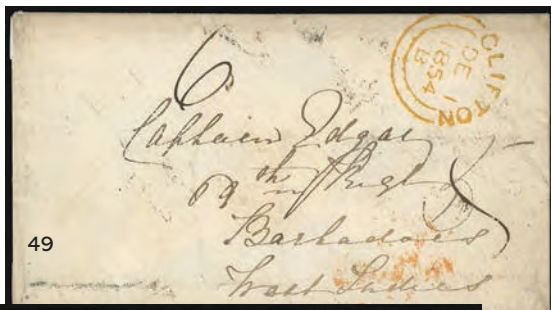 6
CLIFTON
DE 1
1854
B
Captain Edgar
69th Regt
Barbadoes
West Indies
49